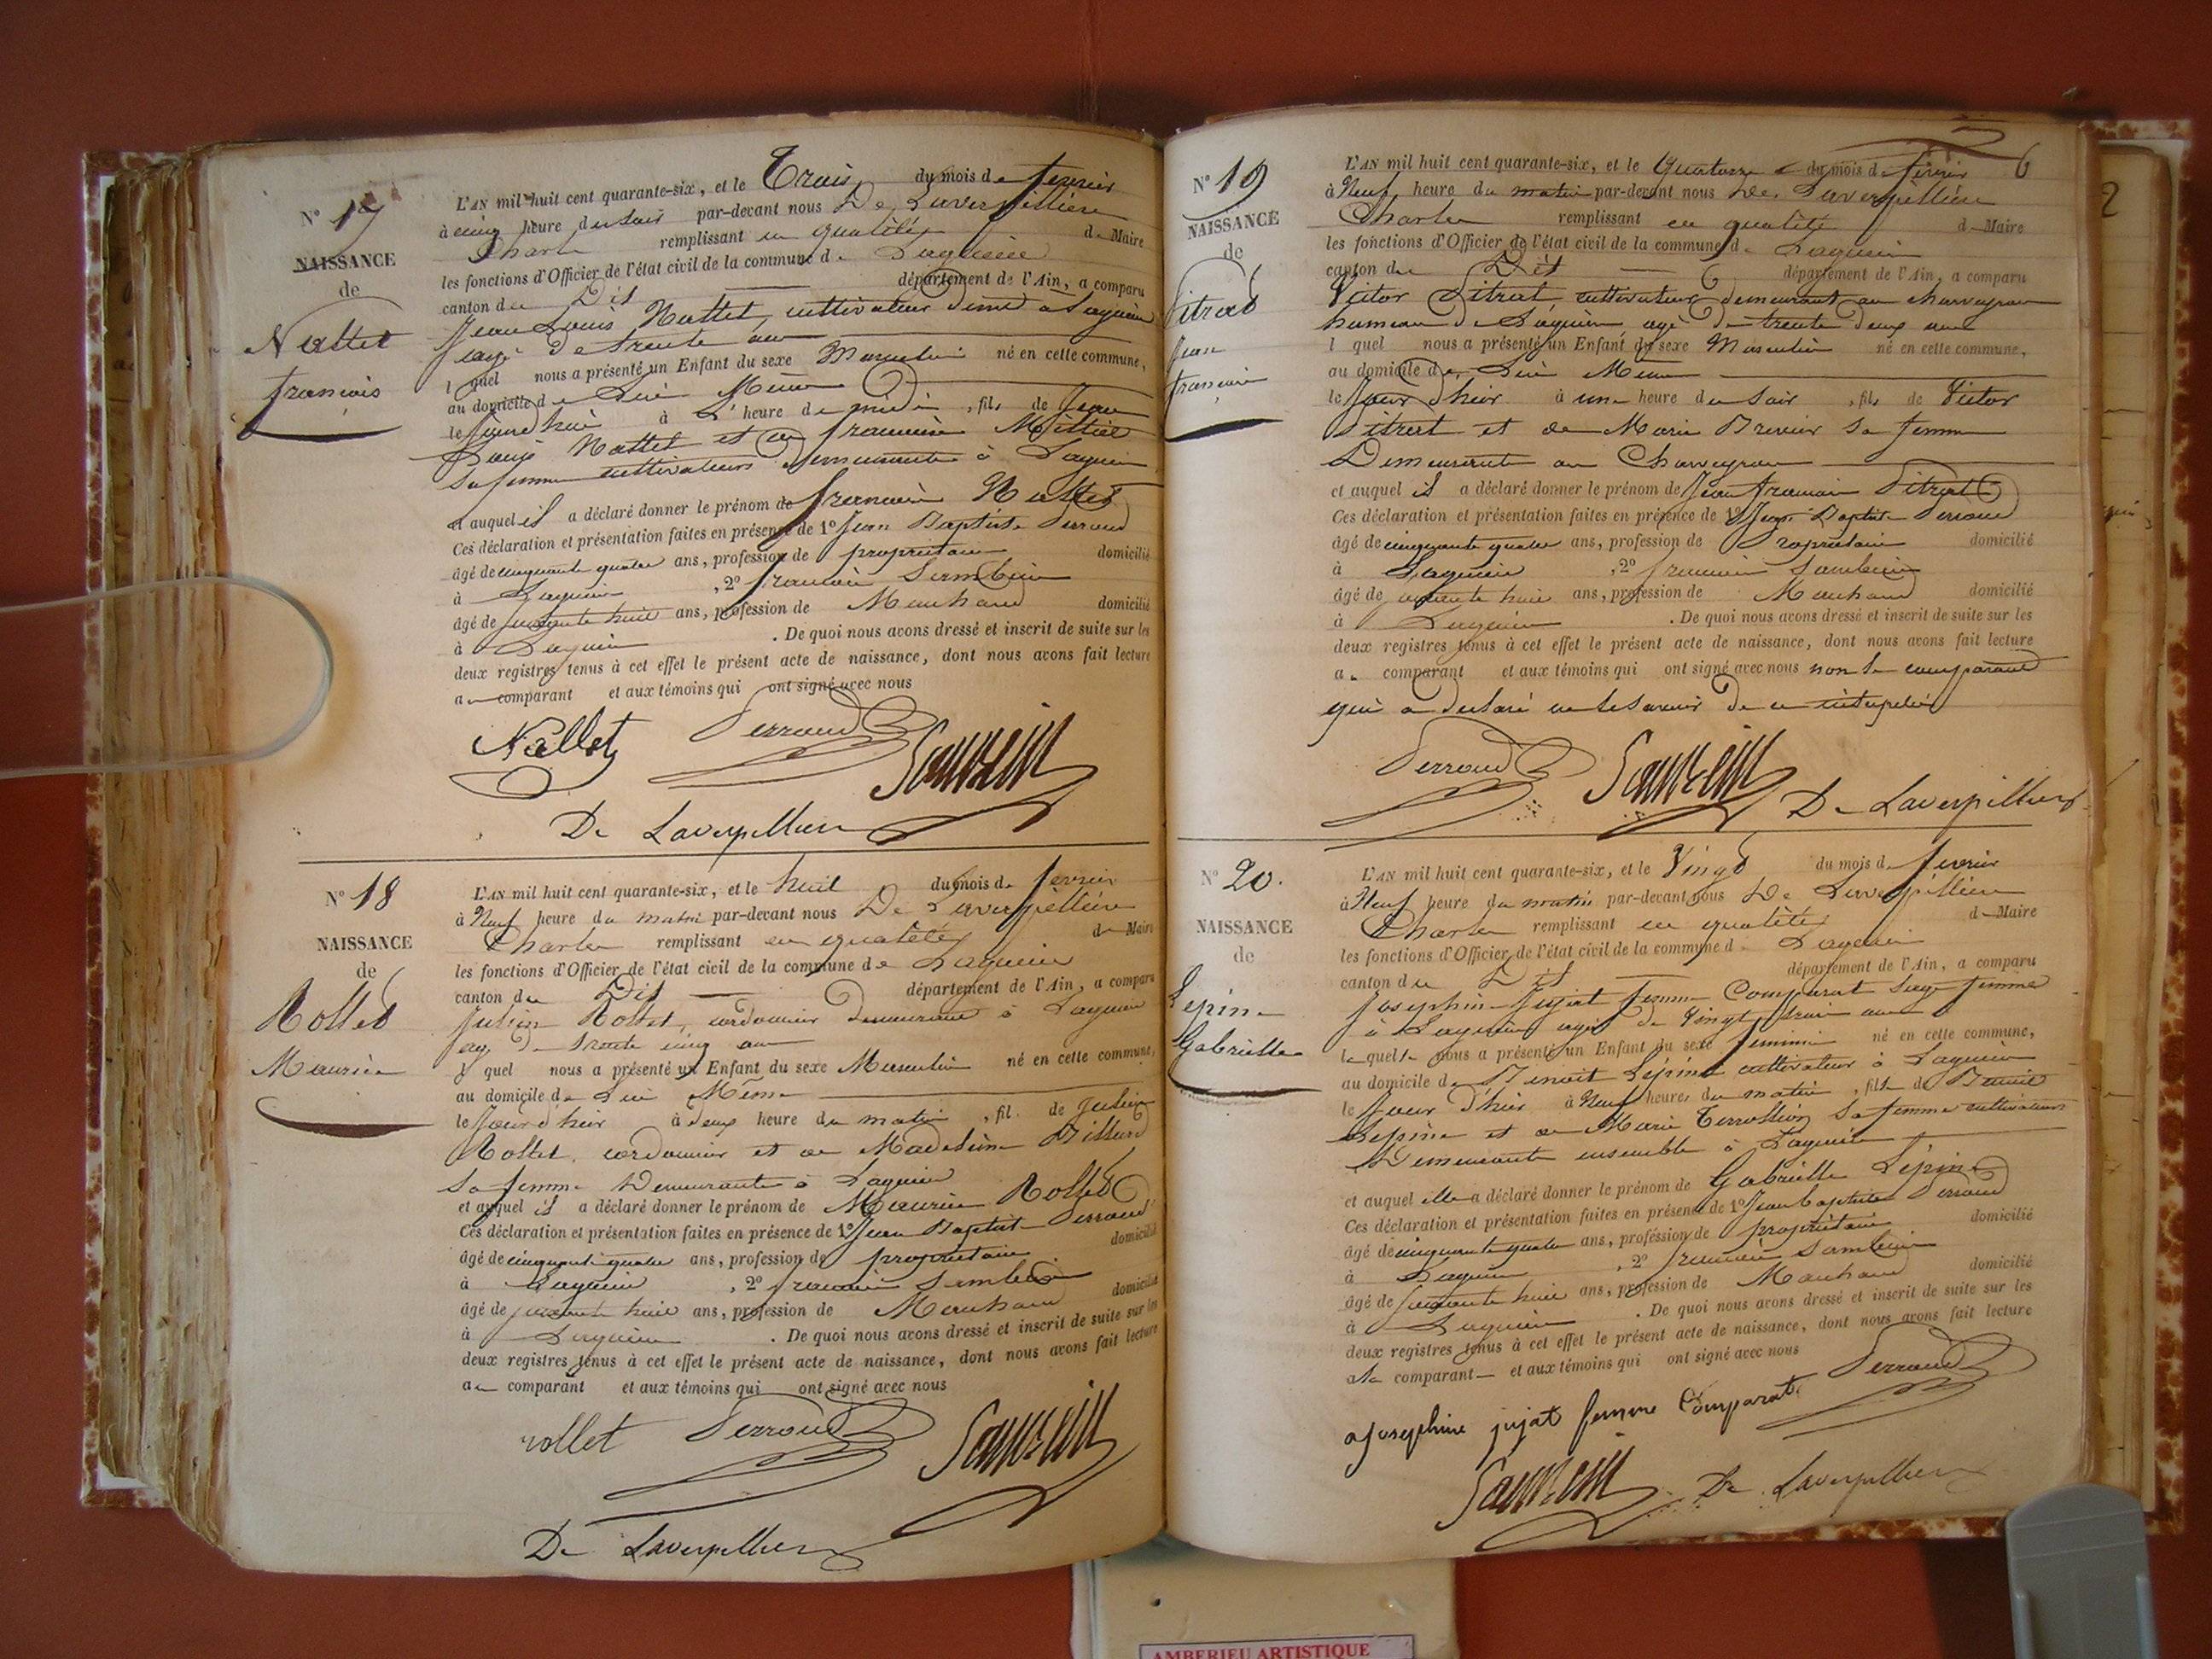 N° 17
NAISSANCE
de
Nallet
françois
L'AN mil huit cent quarante-six, et le Trois du mois de fevrier
à cinq heure du soir par-devant nous De Laverpillière
Charles remplissant en qualité de Maire
les fonctions d'Officier de l'état civil de la commune de Lagnieu
canton du Dit département de l'Ain, a comparu
Jean Louis Nallet, cultivateur à Lagnieu
agé de trente ans
l quel nous a présenté un Enfant du sexe Masculin né en cette commune,
au domicile de Lui Même
le jourd'hui à L'heure de midi, fils de Jean
Louis Nallet et de françoise
sa femme cultivateurs demeurants à Lagnieu
et auquel il a déclaré donner le prénom de françois Nallet
Ces déclaration et présentation faites en présence de 1° Jean Baptiste Perroud
âgé de cinquante quatre ans, profession de propriétaire domicilié
à Lagnieu, 2° françois
âgé de huit ans, profession de Marchand domicilié
à Lagnieu. De quoi nous avons dressé et inscrit de suite sur les
deux registres tenus à cet effet le présent acte de naissance, dont nous avons fait lecture
au comparant et aux témoins qui ont signé avec nous
Nallet Perroud
De Laverpillière
N° 18
NAISSANCE
de
Rollet
Maurice
L'AN mil huit cent quarante-six, et le huit du mois de fevrier
à Neuf heure du matin par-devant nous De Laverpillière
Charles remplissant en qualité de Maire
les fonctions d'Officier de l'état civil de la commune de Lagnieu
canton du Dit département de l'Ain, a comparu
Julien Rollet, cordonnier demeurant à Lagnieu
agé de trente cinq ans
l quel nous a présenté un Enfant du sexe Masculin né en cette commune,
au domicile de Lui Même
le Jourd'hui à deux heure du matin, fil de Julien
Rollet, cordonnier et de Madeleine
sa femme Demeurants à Lagnieu
et auquel il a déclaré donner le prénom de Maurice Rollet
Ces déclaration et présentation faites en présence de 1° Jean Baptiste Perroud
âgé de cinquante quatre ans, profession de propriétaire domicilié
à Lagnieu, 2° françois
âgé de huit ans, profession de Marchand domicilié
à Lagnieu. De quoi nous avons dressé et inscrit de suite sur les
deux registres tenus à cet effet le présent acte de naissance, dont nous avons fait lecture
au comparant et aux témoins qui ont signé avec nous
rollet Perroud
De Laverpillière
6
N° 19
NAISSANCE
de
Pitrat
Jean
françois
L'AN mil huit cent quarante-six, et le Quatorze du mois de fevrier
à Neuf heure du matin par-devant nous De Laverpillière
Charles remplissant en qualité de Maire
les fonctions d'Officier de l'état civil de la commune de Lagnieu
canton du Dit département de l'Ain, a comparu
Victor Pitrat cultivateur demeurant au
hameau de Lagnieu, agé de trente deux ans
l quel nous a présenté un Enfant du sexe Masculin né en cette commune,
au domicile de Lui Même
le Jour d'hier à une heure du soir, fils de Victor
Pitrat et de Marie sa femme
Demeurants au
et auquel il a déclaré donner le prénom de Jean françois Pitrat
Ces déclaration et présentation faites en présence de 1° Jean Baptiste Perroud
âgé de cinquante quatre ans, profession de Propriétaire domicilié
à Lagnieu, 2° françois
âgé de huit ans, profession de Marchand domicilié
à Lagnieu. De quoi nous avons dressé et inscrit de suite sur les
deux registres tenus à cet effet le présent acte de naissance, dont nous avons fait lecture
au comparant et aux témoins qui ont signé avec nous non le comparant
qui a déclaré ne le savoir de ce
Perroud De Laverpillière
N° 20.
NAISSANCE
de
Lépine
Gabrielle
L'AN mil huit cent quarante-six, et le Vingt du mois de fevrier
à Neuf heure du matin par-devant nous De Laverpillière
Charles remplissant en qualité de Maire
les fonctions d'Officier de l'état civil de la commune de Lagnieu
canton du Dit département de l'Ain, a comparu
Josephine Jujat femme Comparat Sage femme
à Lagnieu agée de Vingt trois ans
laquelle nous a présenté un Enfant du sexe feminin né en cette commune,
au domicile de Benoit Lépine cultivateur à Lagnieu
le Jour d'hier à Neuf heures du matin, fille de Benoit
Lépine et de Marie sa femme cultivateurs
Demeurants ensemble à Lagnieu
et auquel elle a déclaré donner le prénom de Gabrielle Lépine
Ces déclaration et présentation faites en présence de 1° Jean baptiste Perroud
âgé de cinquante quatre ans, profession de propriétaire domicilié
à Lagnieu, 2° françois
âgé de huit ans, profession de Marchand domicilié
à Lagnieu. De quoi nous avons dressé et inscrit de suite sur les
deux registres tenus à cet effet le présent acte de naissance, dont nous avons fait lecture
à la comparante et aux témoins qui ont signé avec nous
Perroud
josephine jujat femme Comparat
De Laverpillière
2
AMBERIEU ARTISTIQUE